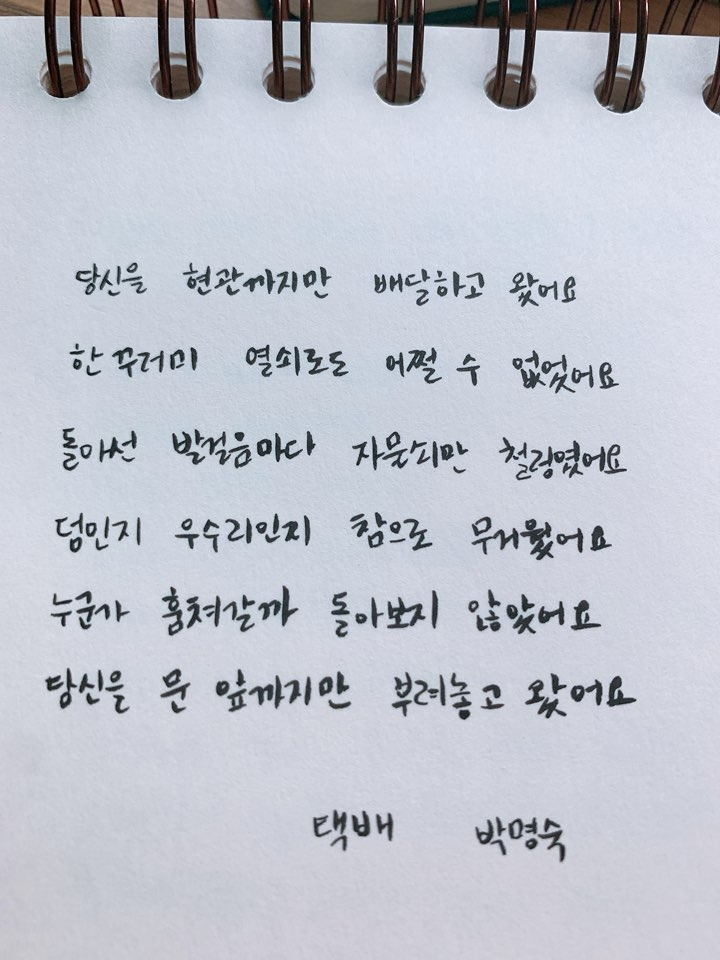 당신을 현관까지만 배달하고 왔어요
한 꾸러미 열쇠로도 어쩔 수 없었어요
돌아선 발걸음마다 자물쇠만 철렁였어요
덤인지 우수리인지 참으로 무거웠어요
누군가 훔쳐갈까 돌아보지 않았어요
당신을 문 앞까지만 부려놓고 왔어요
택배 박명숙